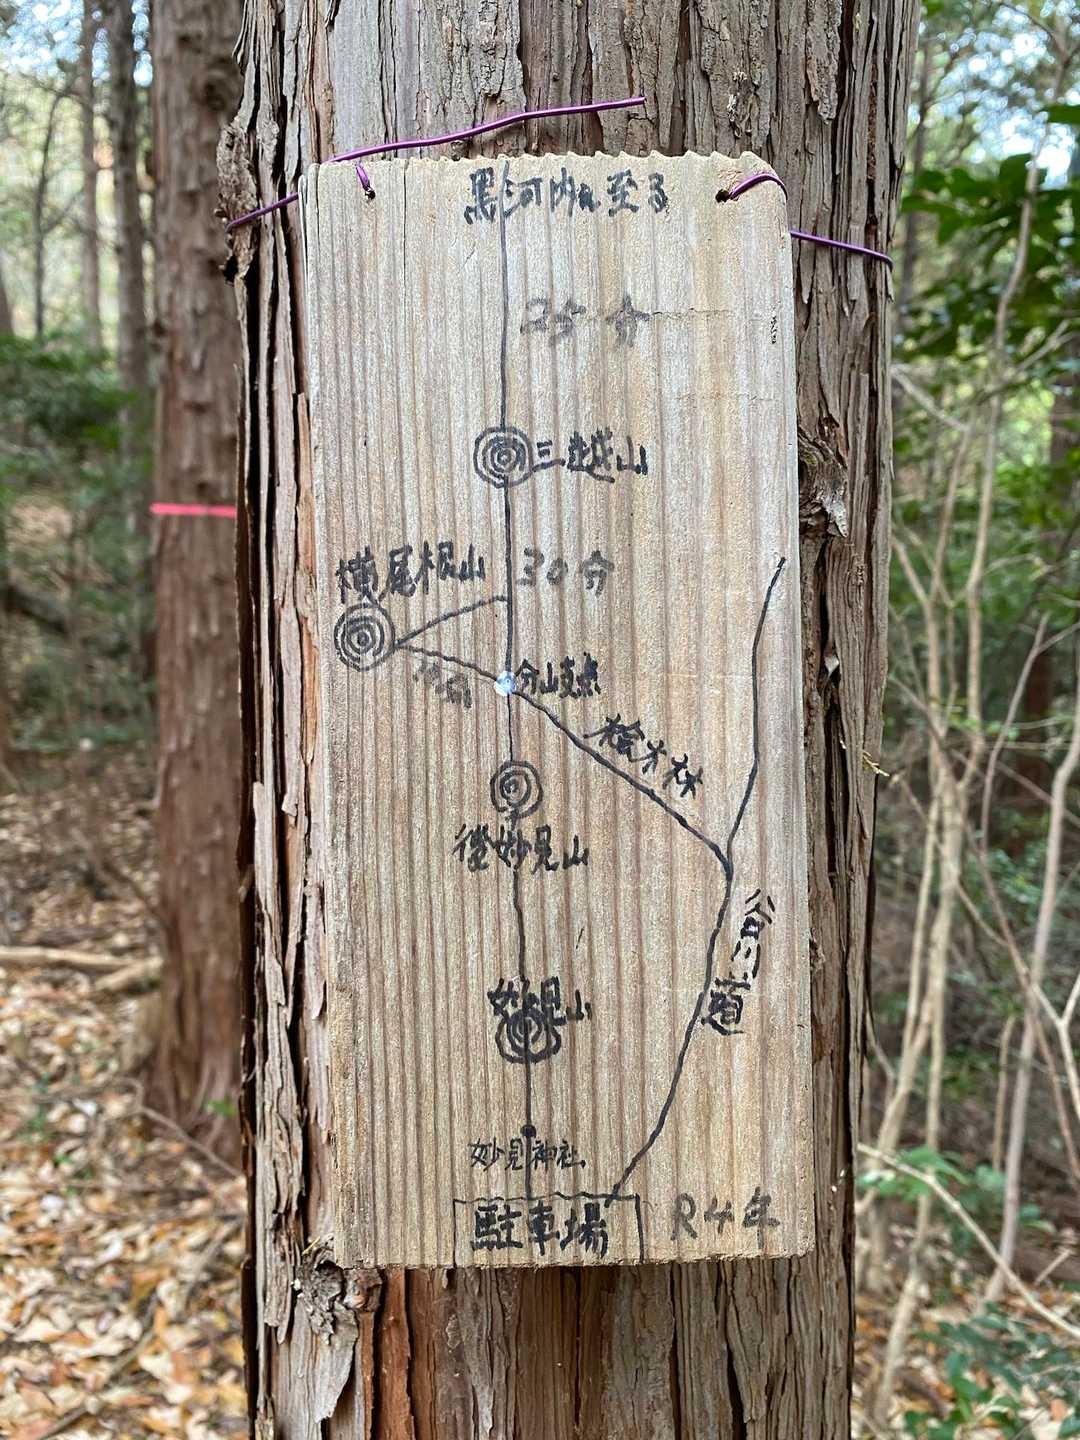 黒河内山至る
25分
三越山
横尾根山
30分
分岐点
檜木林
後妙見山
谷川道
妙見山
妙見神社
駐車場
R4年